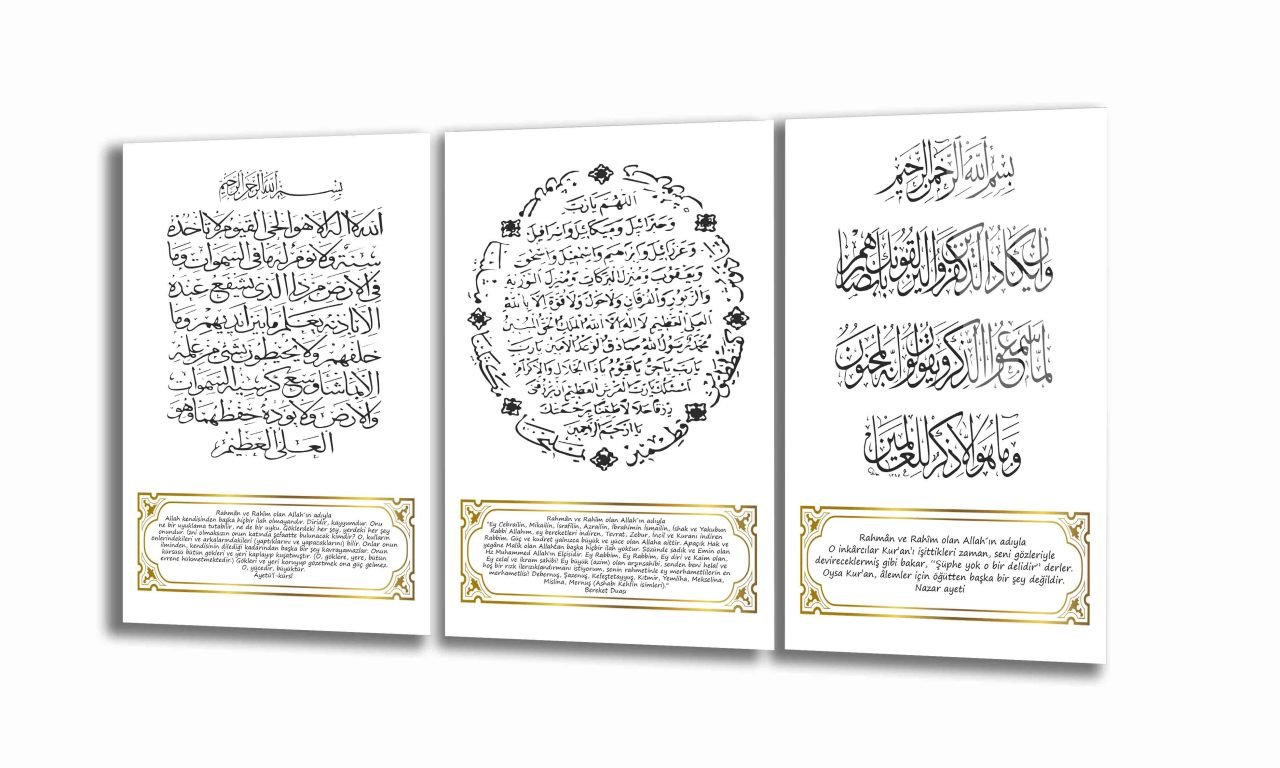 بسم الله الرحمن الرحيم
الله لا اله الا هو الحي القيوم لا تأخذه
سنة ولا نوم له ما في السموات وما
في الارض من ذا الذي يشفع عنده
الا باذنه يعلم ما بين ايديهم وما
خلفهم ولا يحيطون بشئ من علمه
الا بما شاء وسع كرسيه السموات
والارض ولا يؤده حفظهما وهو
العلي العظيم
Rahmân ve Rahîm olan Allah'ın adıyla
Allah kendisinden başka hiçbir ilah olmayandır. Diridir, kayyumdur. Onu
ne bir uyuklama tutabilir, ne de bir uyku. Göklerdeki her şey, yerdeki her şey
onundur. İzni olmaksızın onun katında şefaatte bulunacak kimdir? O, kulların
önlerindekileri ve arkalarındakileri (yaptıklarını ve yapacaklarını) bilir. Onlar onun
ilminden, kendisinin dilediği kadarından başka bir şey kavrayamazlar. Onun
kürsüsü bütün gökleri ve yeri kaplayıp kuşatmıştır. (O, göklere, yere, bütün
evrene hükmetmektedir.) Gökleri ve yeri koruyup gözetmek ona güç gelmez.
O, yücedir, büyüktür.
Ayetü'l -kürsî
اللهم يا رب
وجبرائيل وميكائيل واسرافيل
وعزرائيل وابراهيم واسمعيل واسحق
ويعقوب ومنزل البركات ومنزل التورية
والزبور والفرقان ولا حول ولا قوة الا بالله
العلي العظيم لا اله الا الله الملك الحق المبين
محمد رسول الله صادق الوعد الامين يا رب
يا رب يا حي يا قيوم يا ذا الجلال والاكرام
اسئلك يا رب العرش العظيم ان ترزقني
رزقا حلالا طيبا برحمتك
يا ارحم الراحمين
قطمير
Rahmân ve Rahîm olan Allah'ın adıyla
"Ey Cebrailin, Mikailin, İsrafilin, Azrailin, İbrahimin İsmailin, İshak ve Yakubun
Rabbi Allahım, ey bereketleri indiren, Tevrat, Zebur, İncil ve Kuranı indiren
Rabbim. Güç ve kudret yalnızca büyük ve yüce olan Allaha aittir. Apaçık Hak ve
yegâne Malik olan Allahdan başka hiçbir ilah yoktur. Sözünde sadık ve Emin olan
Hz Muhammed Allah'ın Elçisidir. Ey Rabbim, Ey Rabbim, Ey diri ve Kaim olan,
Ey celal ve ikram sahibi! Ey büyük (azim) olan arşınsahibi, senden beni helal ve
hoş bir rızık ilerızıklandırmanı istiyorum, senin rahmetinle ey merhametlilerin en
merhametlisi! Debernoş, Şazenoş, Kefeştetayyuş, Kıtmir, Yemliha, Mekselina,
Mislina, Mernuş (Ashabı Kehfin isimleri)."
Bereket Duası
بسم الله الرحمن الرحيم
وان يكاد الذين كفروا ليزلقونك بابصارهم
لما سمعوا الذكر ويقولون انه لمجنون
وما هو الا ذكر للعالمين
Rahmân ve Rahîm olan Allah'ın adıyla
O inkârcılar Kur'an'ı işittikleri zaman, seni gözleriyle
devireceklermiş gibi bakar, "Şüphe yok o bir delidir' derler.
Oysa Kur'an, âlemler için öğütten başka bir şey değildir.
Nazar ayeti